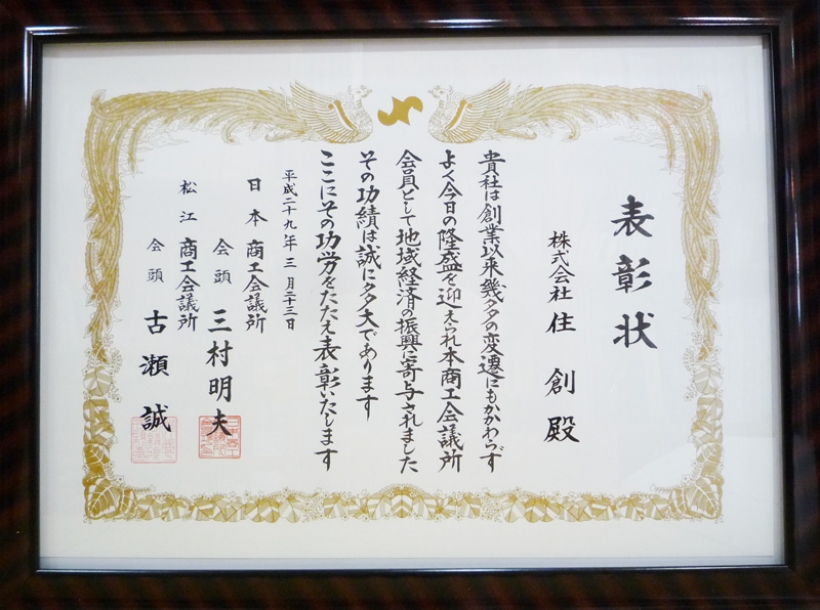 表彰状
株式会社 住創殿
貴社は創業以来幾多の変遷にもかかわらず
よく今日の隆盛を迎えられ本商工会議所
会員として地域経済の振興に寄与されました
その功績は誠に多大であります
ここにその功労をたたえ表彰いたします
平成二十九年三月二十三日
日本商工会議所
会頭 三村明夫
松江商工会議所
会頭 古瀬誠